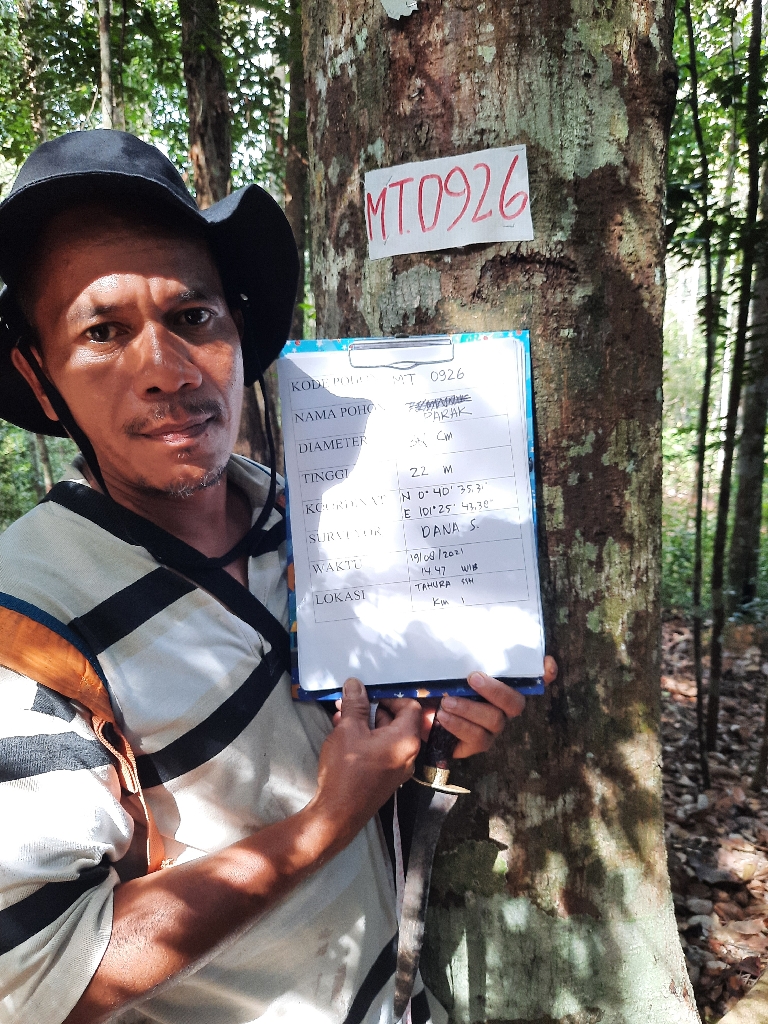 MT.0926
KODE POHON MT 0926
NAMA POHON PARAK
DIAMETER Cm
TINGGI 22 M
KOORDINAT N 0° 40' 35.31"
E 101° 25' 43.38"
SURVEYOR DANA S.
WAKTU 19/08/2021
14.47 WIB
LOKASI TAHURA SSH
Km 1